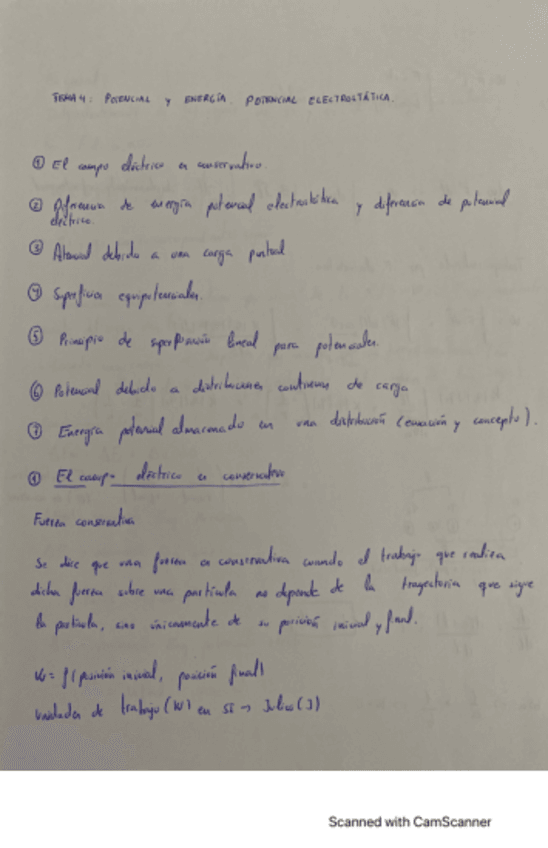 TEMA 4: POTENCIAL Y ENERGÍA POTENCIAL ELECTROSTÁTICA.
① El campo eléctrico es conservativo.
② Diferencia de energía potencial electrostática y diferencia de potencial
eléctrico.
③ Potencial debido a una carga puntual
④ Superficies equipotenciales.
⑤ Principio de superposición lineal para potenciales.
⑥ Potencial debido a distribuciones continuas de carga
⑦ Energía potencial almacenada en una distribución (ecuación y concepto).
① El campo eléctrico es conservativo
Fuerza conservativa
Se dice que una fuerza es conservativa cuando el trabajo que realiza
dicha fuerza sobre una partícula no depende de la trayectoria que sigue
la partícula, sino únicamente de su posición inicial y final.
W = f(posición inicial, posición final)
Unidades de trabajo (W) en SI → Julios (J)
Scanned with CamScanner